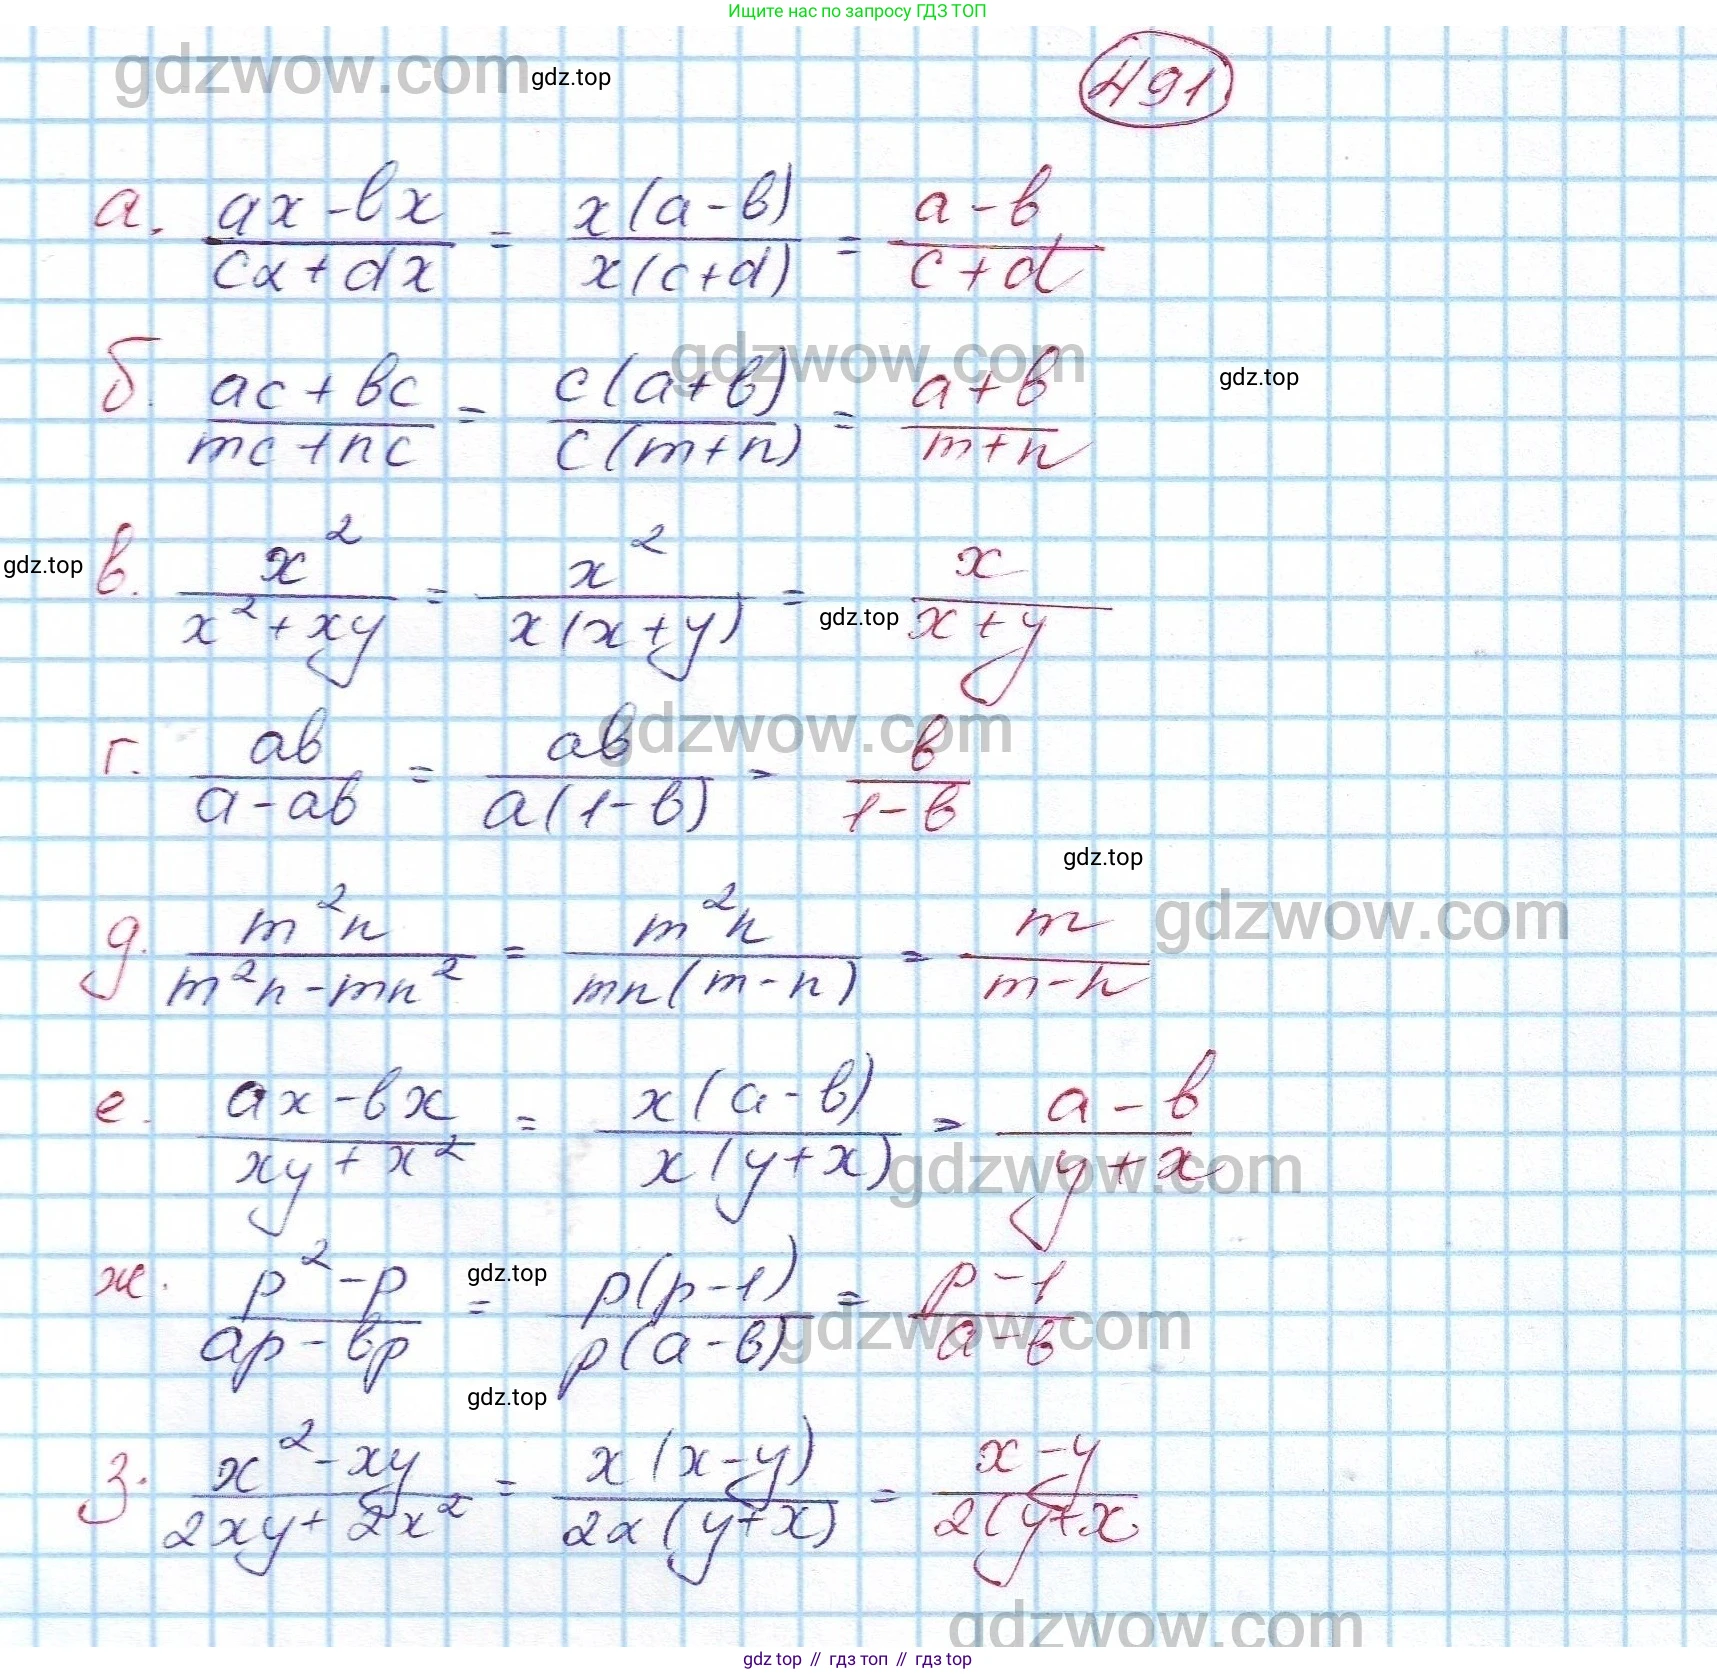 Ищите нас по запросу ГДЗ ТОП
gdzwow.com gdz.top 491
а. (ax-bx)/(cx+dx) = x(a-b)/x(c+d) = (a-b)/(c+d)
gdzwow.com
б. (ac+bc)/(mc+nc) = c(a+b)/c(m+n) = (a+b)/(m+n) gdz.top
gdz.top в. x²/(x²+xy) = x²/x(x+y) = gdz.top x/(x+y)
gdzwow.com
г. ab/(a-ab) = ab/a(1-b) = b/(1-b)
gdz.top
д. m²n/(m²n-mn²) = m²n/mn(m-n) = m/(m-n) gdzwow.com
е. (ax-bx)/(xy+x²) = x(a-b)/x(y+x) = (a-b)/(y+x)
gdzwow.com
ж. (p²-p)/(ap-bp) gdz.top = p(p-1)/p(a-b) = (p-1)/(a-b)
gdzwow.com
gdz.top
з. (x²-xy)/(2xy+2x²) = x(x-y)/2x(y+x) = (x-y)/2(y+x
gdzwow.com
gdz top // гдз топ // гдз top